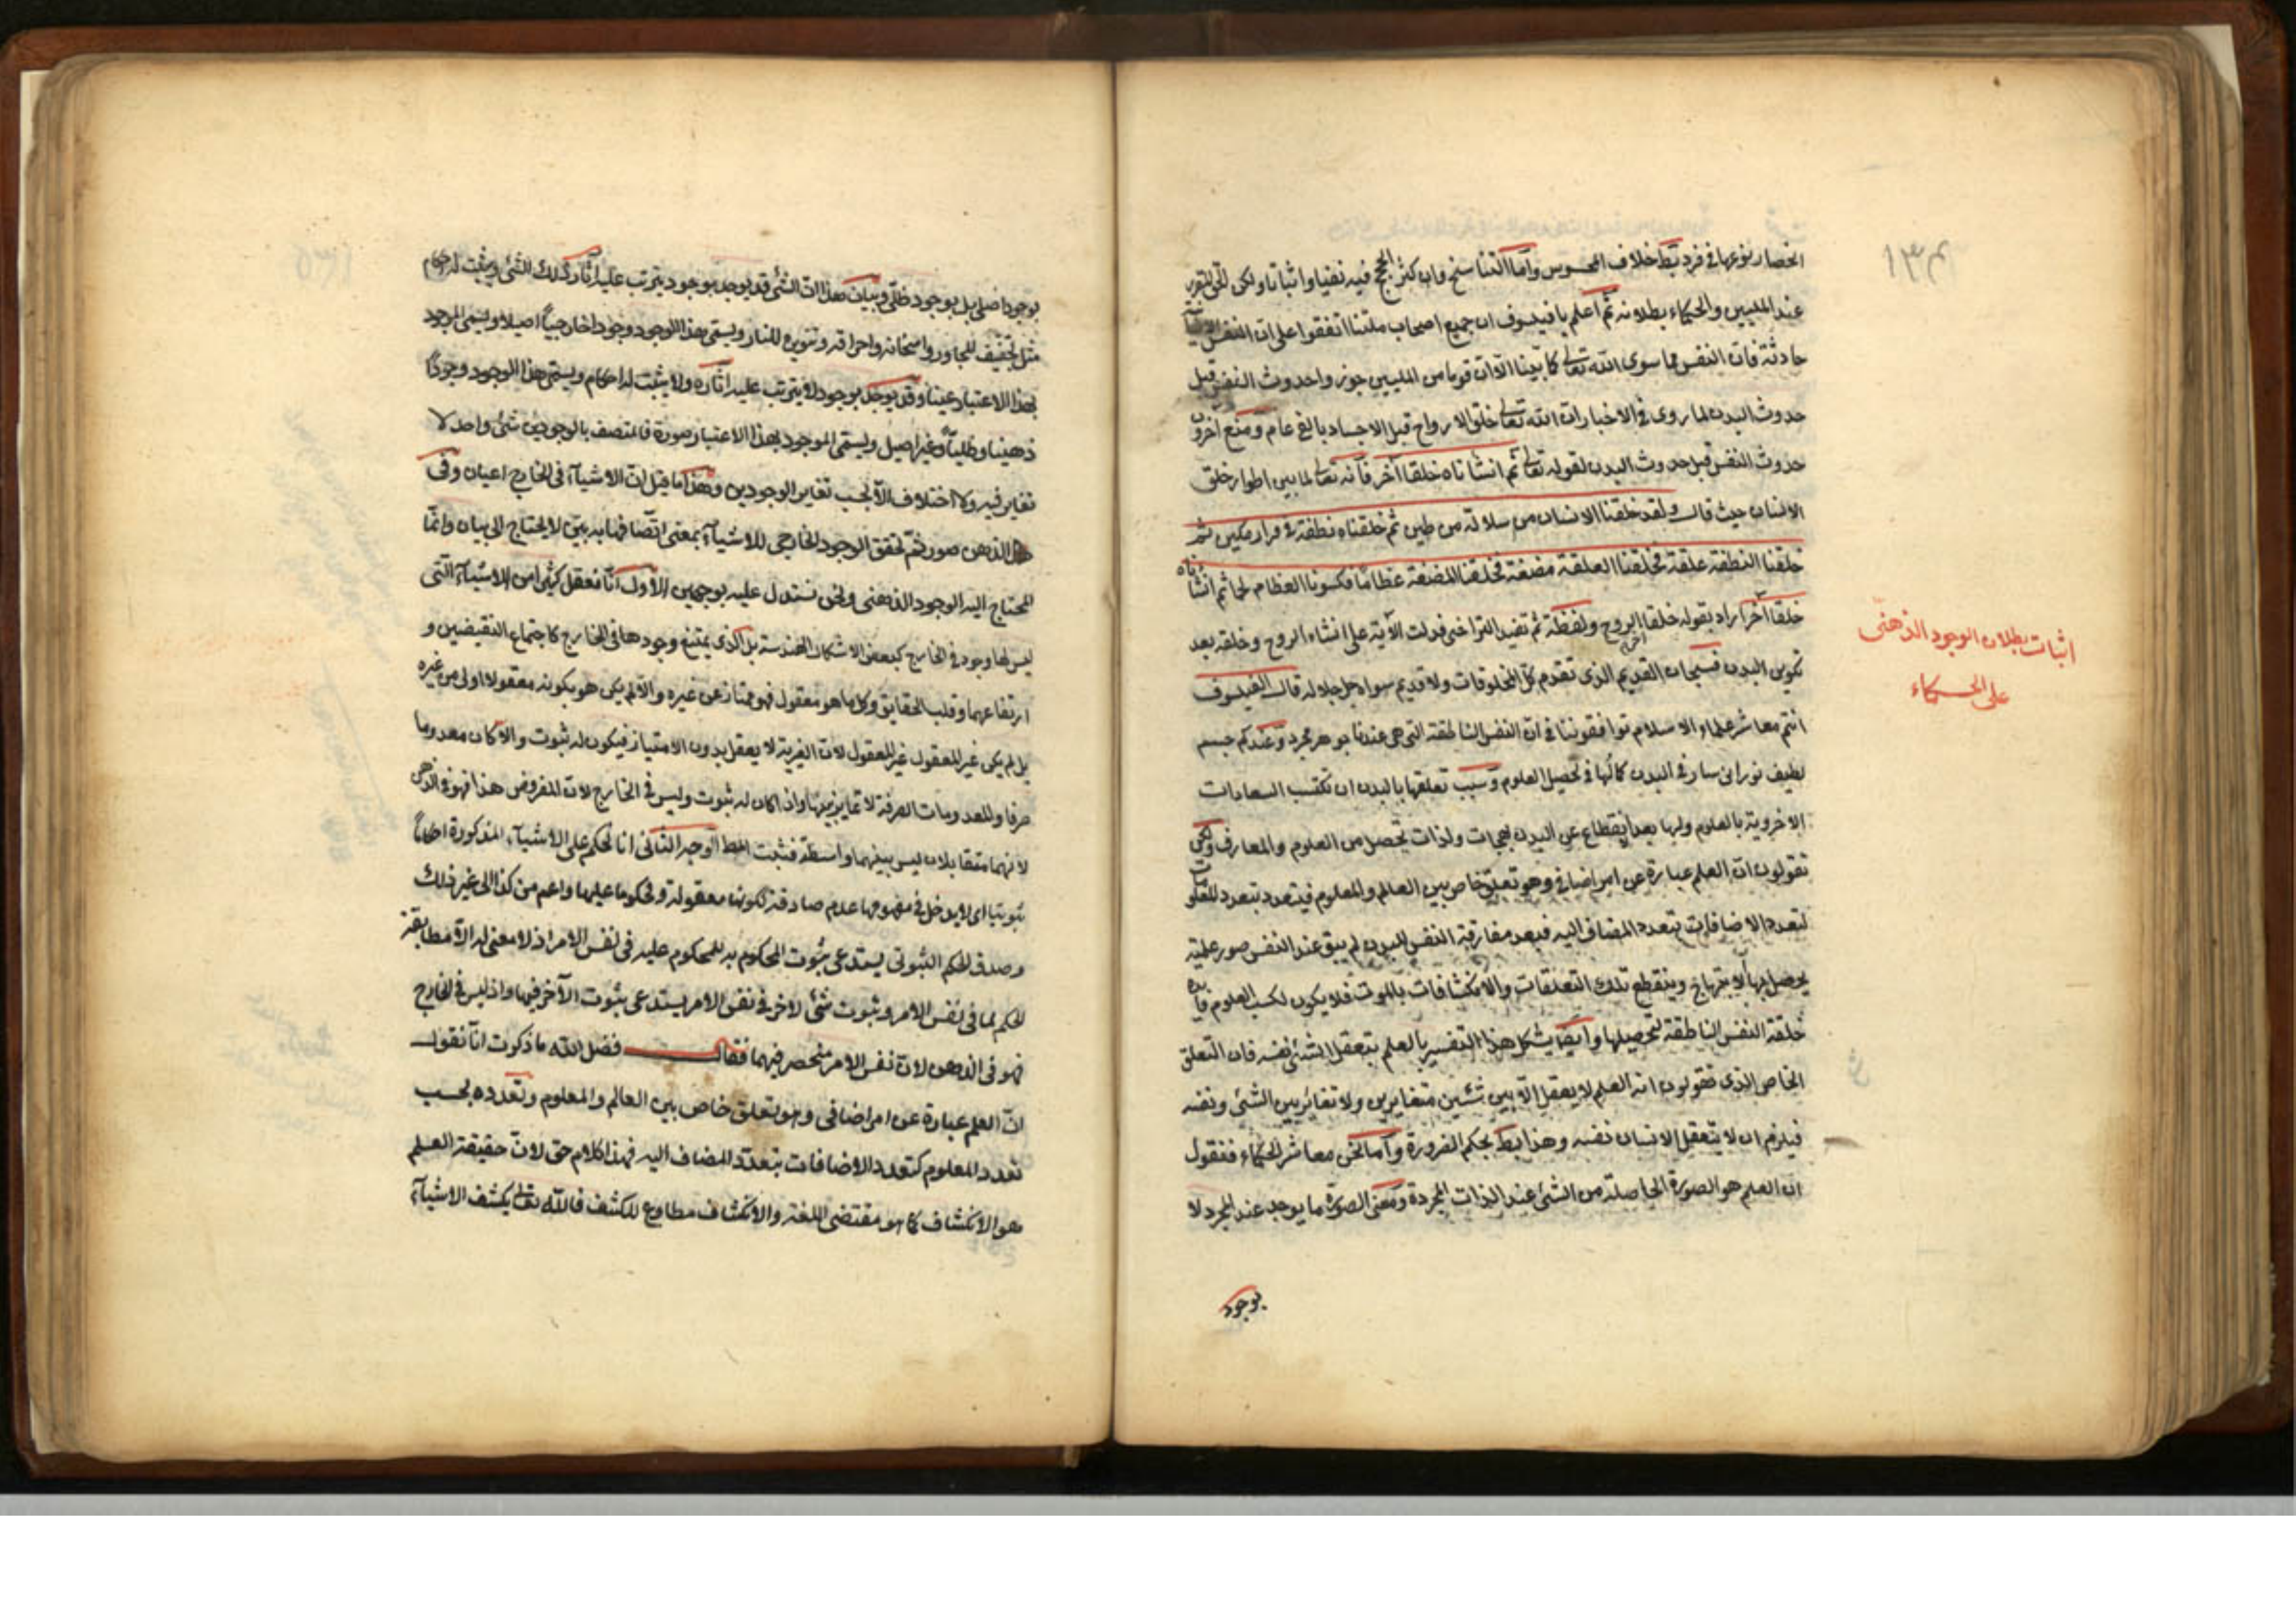 ١٣٤
انحصار نوعها فى فرد بط خلاف المحسوس واما التناسخ وان كثر الحجج فيه نفيا واثباتا ولكن الحق المتقرر
عند المليين والحكماء بطلانه ثم اعلم يا فيلسوف ان جميع اصحاب ملتنا اتفقوا على ان النفس
حادثة فان النفس مما سوى الله تعالى كما بينا الا ان قوما من المليين جوزوا حدوث النفس قبل
حدوث البدن لما روى فى الاخبار ان الله تعالى خلق الارواح قبل الاجساد بالفى عام ومنع آخرون
حدوث النفس قبل حدوث البدن لقوله تعالى ثم انشأناه خلقا آخر فانه تعالى لما بين اطوار خلق
الانسان حيث قال ولقد خلقنا الانسان من سلالة من طين ثم خلقناه نطفة فى قرار مكين ثم
خلقنا النطفة علقة فخلقنا العلقة مضغة فخلقنا المضغة عظاما فكسونا العظام لحما ثم انشأناه
خلقا آخر اراد بقوله خلقا آخر الروح ولفظة ثم تفيد التراخى فدلت الآية على انشاء الروح وخلقه بعد
تكوين البدن فسبحان القديم الذى تقدم كل المخلوقات ولا قديم سواه جل جلاله قال الفيلسوف
انتم معاشر علماء الاسلام توافقوننا فى ان النفس الناطقة التى هى عندنا جوهر مجرد وعندكم جسم
لطيف نورانى سار فى البدن كمالها فى تحصيل العلوم وسبب تعلقها بالبدن ان تكتسب السعادات
الاخروية بالعلوم ولها بعد انقطاع عن البدن بهجات ولذات تحصل من العلوم والمعارف ولكن
تقولون ان العلم عبارة عن امر اضافى وهو تعلق خاص بين العالم والمعلوم فيتعدد بتعدد المعلومات
لتعدد الاضافات بتعدد المضاف اليه فبعد مفارقة النفس للبدن لم يبق عند النفس صور علمية
يحصل لها الابتهاج وينقطع تلك التعلقات والانكشافات بالموت فلا يكون لكسب العلوم فايدة
خلقة النفس الناطقة لتحصيلها وايضا يشكل هذا التفسير بالعلم بتعقل الشئ نفسه فان التعلق
الخاص الذى تقولون انه العلم لا يعقل الا بين شئين متغايرين ولا تغاير بين الشئ ونفسه
فيلزم ان لا يتعقل الانسان نفسه وهذا بط بحكم الضرورة واما نحن معاشر الحكماء فنقول
ان العلم هو الصورة الحاصلة من الشئ عند الذات المجردة ومعنى الصورة ما يوجد عند المجرد لا
بوجود
اثبات بطلان الوجود الذهنى
على الحكماء
بوجود اصلى بل بوجود ظلى وبيان هذا ان الشئ قد يوجد بوجود يترتب عليه آثار ذلك الشئ ويثبت له احكام
مثل تجفيف للمجاور واسخانه واحراقه وتنويره للنار ويسمى هذا الوجود وجودا خارجيا اصيلا ويسمى الموجود
بهذا الاعتبار عينا وقد يوجد بوجود لا يترتب عليه اثاره ولا يثبت له احكام ويسمى هذا الوجود وجودا
ذهنيا وظليا وغير اصيل ويسمى الموجود بهذا الاعتبار صورة فالمتصف بالوجودين شئ واحد لا
تغاير فيه ولا اختلاف الا بحسب تغاير الوجودين وهذا ما قيل ان الاشيآء فى الخارج اعيان وفى
الذهن صور ثم تحقق الوجود الخارجى للاشيآء بمعنى اتصافها به بين لا يحتاج الى بيان وانما
المحتاج اليه الوجود الذهنى ونحن نستدل عليه بوجهين الاول انا نعقل كثيرا من الاشيآء التى
ليس لها وجود فى الخارج كبعض الاشكال الهندسة بل الذى يمتنع وجودها فى الخارج كاجتماع النقيضين و
ارتفاعهما وقلب الحقايق وكل ما هو معقول فهو ممتاز عن غيره والا لم يكن هو بكونه معقولا اولى من غيره
بل لم يكن غير المعقول غير المعقول لان الغيرية لا يعقل بدون الامتياز فيكون له ثبوت والا كان معدوما
صرفا والمعدومات الصرفة لا تمايز بينها واذا كان له ثبوت وليس فى الخارج لان المفروض هذا فهو فى الذهن
لانهما متقابلان ليس بينهما واسطة فثبت المط الوجه الثانى انا نحكم على الاشيآء المذكورة احكاما
ثبوتيا اى لا يدخل فى مفهومها عدم صادقة ككونها معقولة ومحكوما عليها واعم من كذا الى غير ذلك
وصدق الحكم الثبوتى يستدعى ثبوت المحكوم به للمحكوم عليه فى نفس الامر اذ لا معنى له الا مطابقة
الحكم لما فى نفس الامر وثبوت شئ لاخر فى نفس الامر يستدعى ثبوت الآخر فيها واذ ليس فى الخارج
فهو فى الذهن لان نفس الامر منحصر فيهما فقال فضل الله ما ذكرت انا نقول
ان العلم عبارة عن امر اضافى وهو تعلق خاص بين العالم والمعلوم وتعدده بحسب
تعدد المعلوم كتعدد الاضافات بتعدد المضاف اليه فهذا كلام حق لان حقيقة العلم
هو الانكشاف كما هو مقتضى اللغة والانكشاف مطاوع للكشف فالله تعالى يكشف الاشيآء